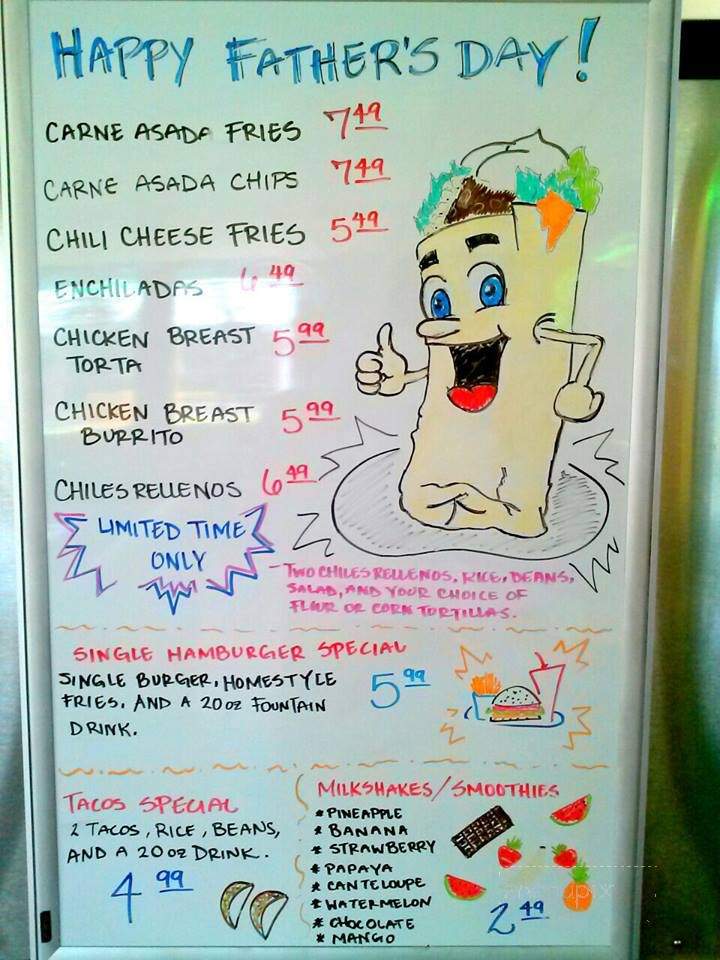 HAPPY FATHER'S DAY!
CARNE ASADA FRIES 7 49
CARNE ASADA CHIPS 7 49
CHILI CHEESE FRIES 5 49
ENCHILADAS 49
CHICKEN BREAST 5 99
TORTA
CHICKEN BREAST 5 99
BURRITO
CHILES RELLENOS 6 49
LIMITED TIME
ONLY
- TWO CHILES RELLENOS, RICE, BEANS,
SALAD, AND YOUR CHOICE OF
FLOUR OR CORN TORTILLAS.
SINGLE HAMBURGER SPECIAL
SINGLE BURGER, HOMESTYLE 5 99
FRIES, AND A 20 oz FOUNTAIN
DRINK.
TACOS SPECIAL
2 TACOS, RICE, BEANS,
AND A 20 oz DRINK.
4 99
MILKSHAKES/SMOOTHIES
* PINEAPPLE
* BANANA
* STRAWBERRY
* PAPAYA
* CANTELOUPE
* WATERMELON
* CHOCOLATE
* MANGO
2 49